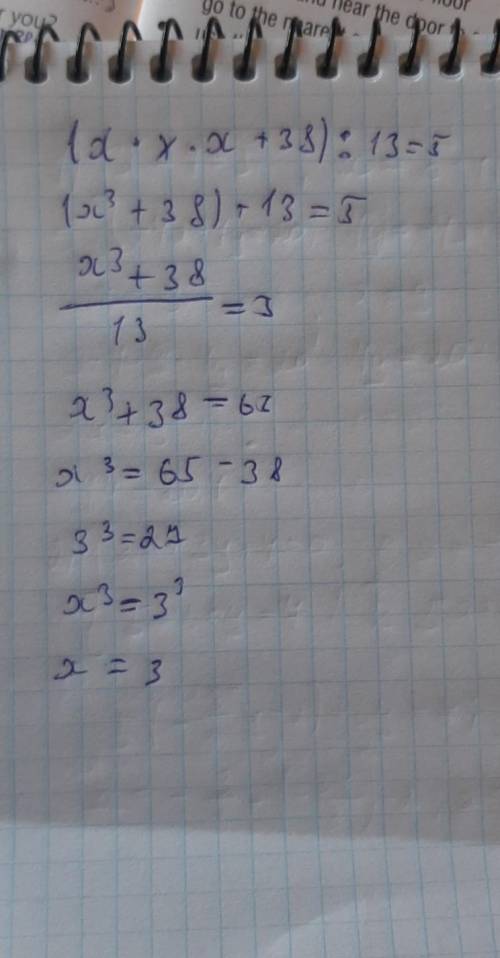 you?
go to the
near the door
(x · x · x + 38) : 13 = 5
(x³ + 38) ÷ 13 = 5
x³ + 38
13
= 3
x³ + 38 = 65
x³ = 65 - 38
3³ = 27
x³ = 3³
x = 3